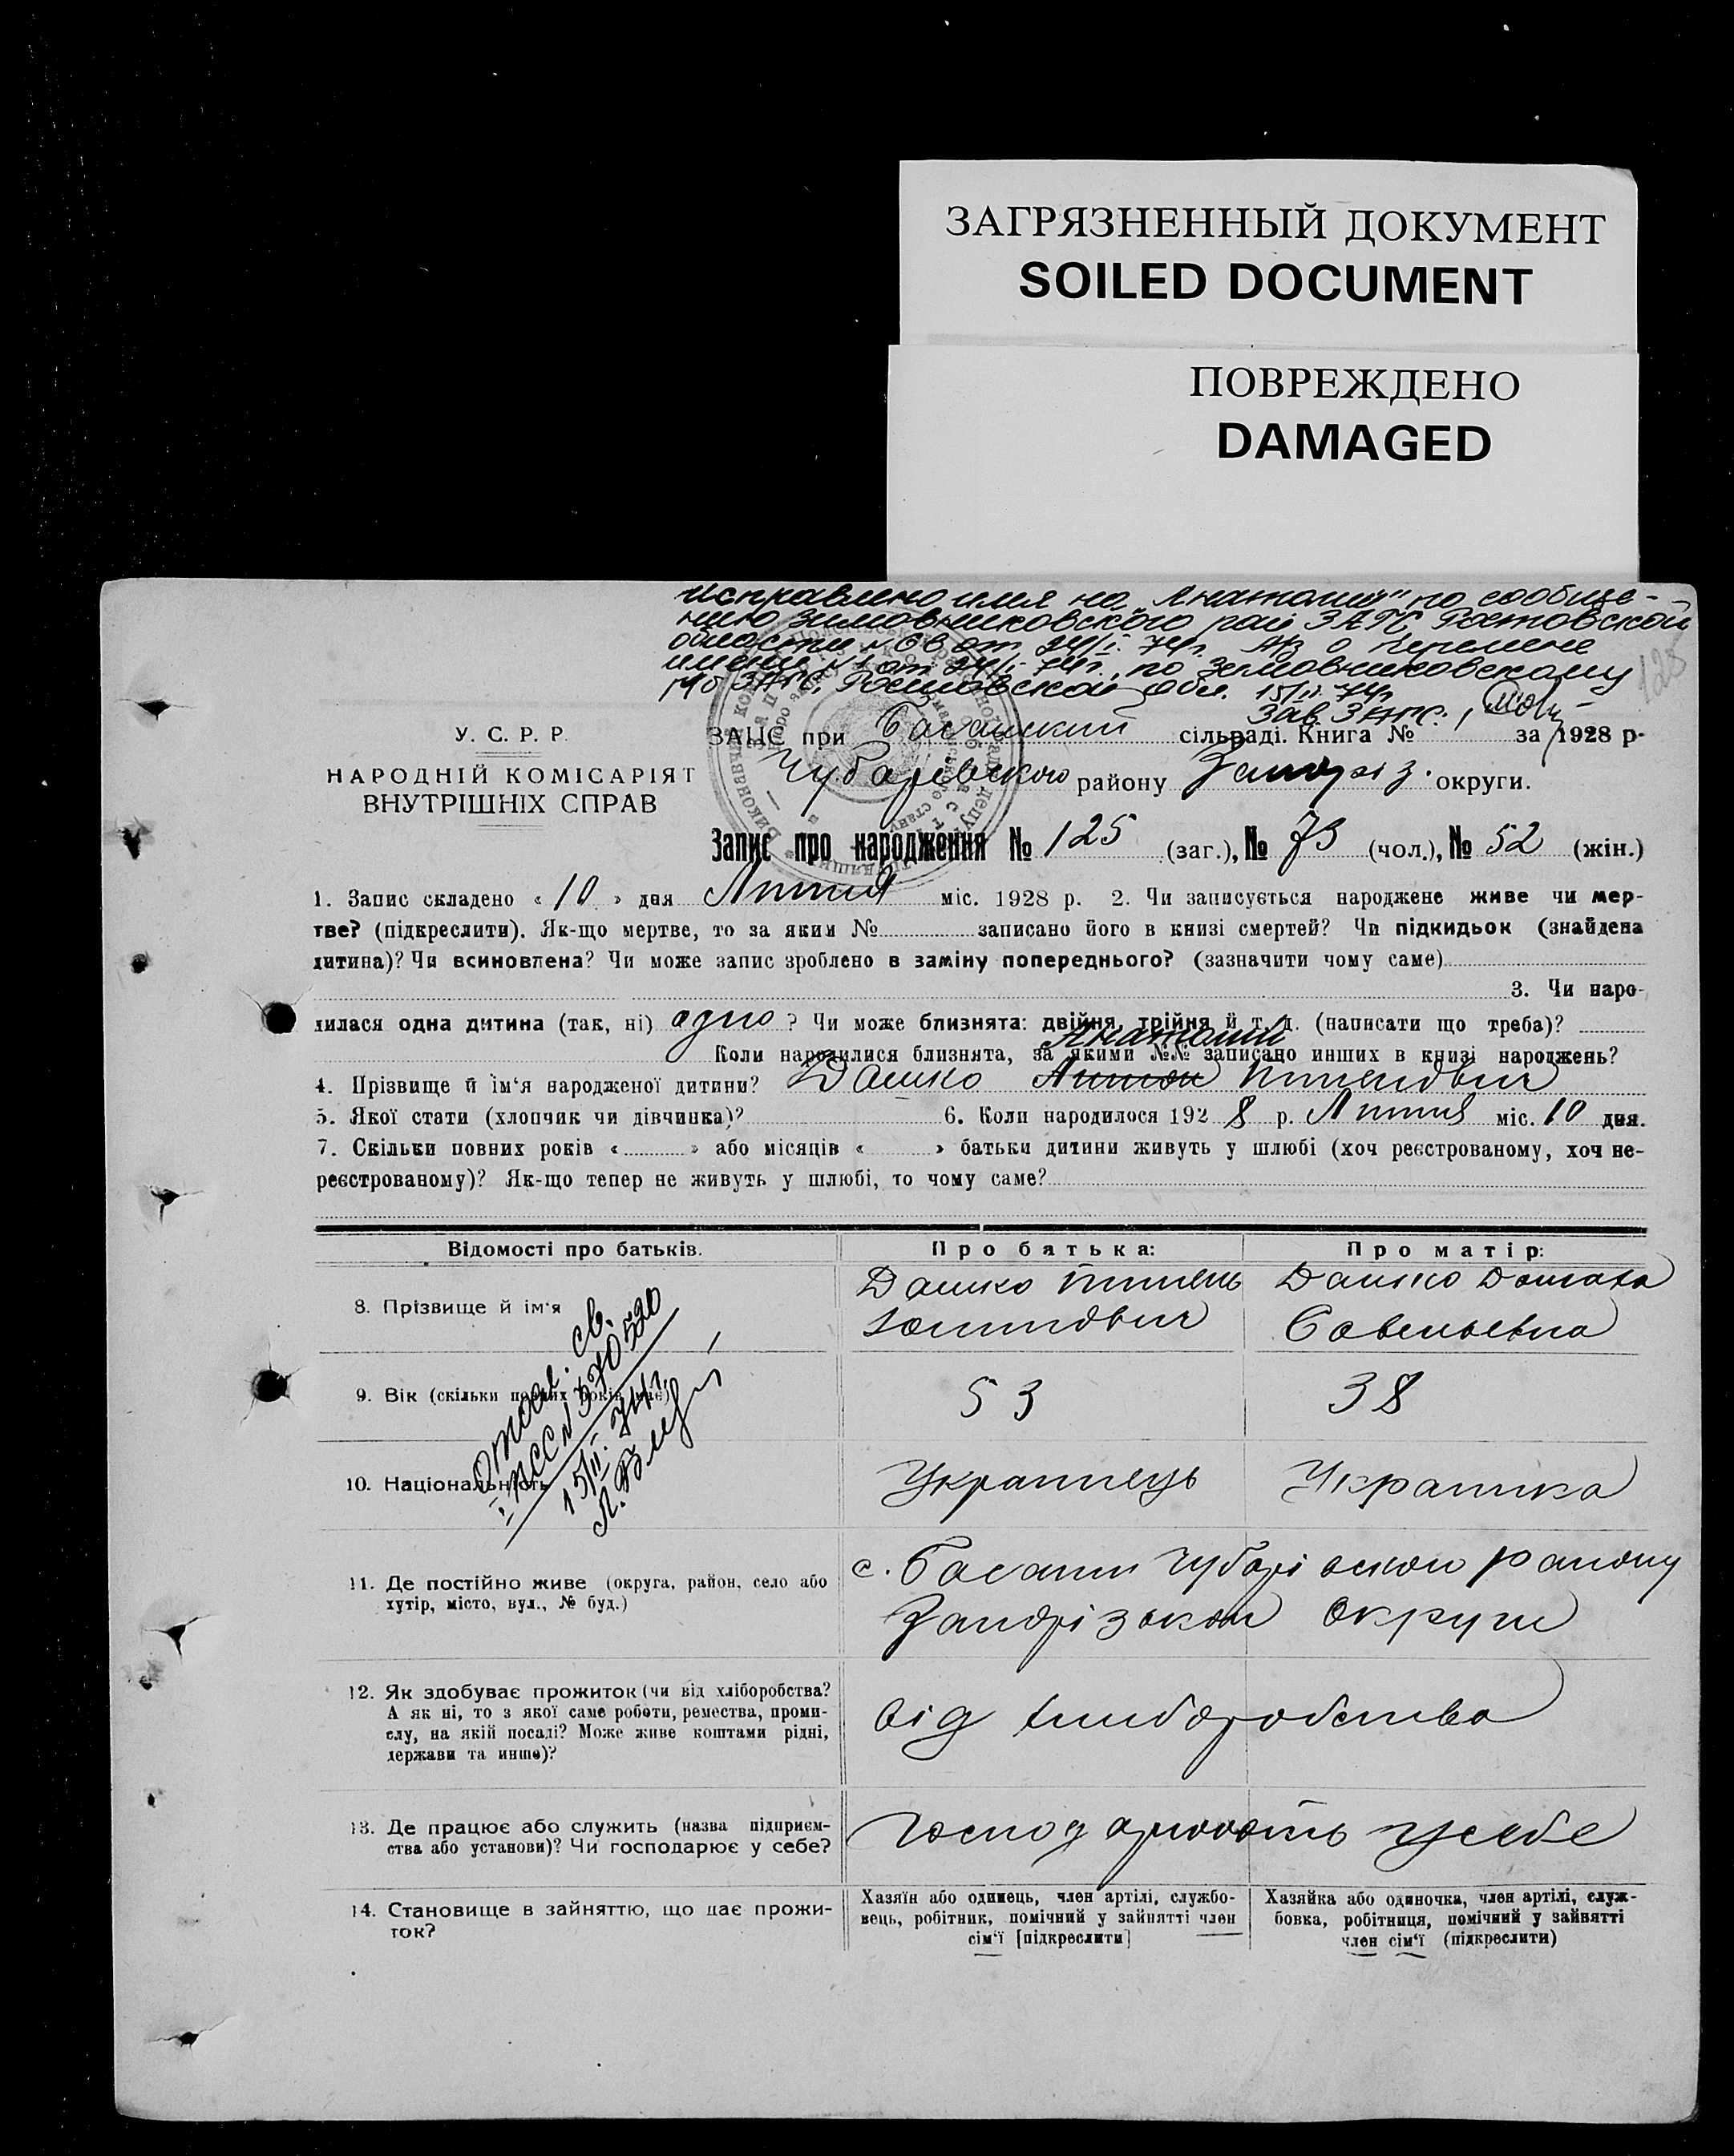 ЗАГРЯЗНЕННЫЙ ДОКУМЕНТ
SOILED DOCUMENT
ПОВРЕЖДЕНО
DAMAGED
Исправлено имя на "Анатолий" по сообще-
нию Зимовниковского рай ЗАГС Ростовской
области №66 от 24/I-74г. А/з о перемене
имени №1 от 24/I-74г. по Зимовниковскому
р/б ЗАГС, Ростовской обл. 15/II-74г
Зав. ЗАГС.
125
У. С. Р. Р.
НАРОДНІЙ КОМІСАРІЯТ
ВНУТРІШНІХ СПРАВ
ЗАЦС при Басанский сільраді. Книга № за 1928 р-
Чубаревскою району Запоріз. округи.
Запис про народження № 125 (заг.), № 73 (чол.), № 52 (жін.)
1. Запис складено « 10 » дня Липня міс. 1928 р. 2. Чи записується народжене живе чи мер-
тве? (підкреслити). Як-що мертве, то за яким № записано його в книзі смертей? Чи підкидьок (знайдена
дитина)? Чи всиновлена? Чи може запис зроблено в заміну попереднього? (зазначити чому саме)
3. Чи наро-
дилася одна дитина (так, ні) одно ? Чи може близнята: двійня, трійня й т. д. (написати що треба)?
Анатолий
Коли народилися близнята, за якими №№ записано инших в книзі народжень?
4. Прізвище й ім'я народженої дитини? Дашко Антон Пименович
5. Якої стати (хлопчик чи дівчинка)? 6. Коли народилося 192 8 р. Липня міс. 10 дня.
7. Скільки повних років « » або місяців « » батьки дитини живуть у шлюбі (хоч реєстрованому, хоч не-
реєстрованому)? Як-що тепер не живуть у шлюбі, то чому саме?
Відомості про батьків. Про батька: Про матір:
8. Прізвище й ім'я
Дашко Пимень
Дашко Домаха
Савельевна
9. Вік (скільки повних років має)
53
38
10. Національність
Українець
Українка
св.
№ 370520
15/II-74г.
11. Де постійно живе (округа, район, село або
хутір, місто, вул., № буд.)
с. Басань Чубарівскои району
Запорізькои округи
12. Як здобуває прожиток (чи від хліборобства?
А як ні, то з якої саме роботи, ремества, проми-
слу, на якій посаді? Може живе коштами рідні,
держави та инше)?
від хлиборобства
13. Де працює або служить (назва підприєм-
ства або установи)? Чи господарює у себе?
Господарюють у себе
14. Становище в зайняттю, що дає прожи-
ток?
Хазяїн або одинець, член артілі, службо-
вець, робітник, помічний у зайнятті член
сім'ї [підкреслити]
Хазяйка або одиночка, член артілі, служ-
бовка, робітниця, помічний у зайнятті
член сім'ї (підкреслити)